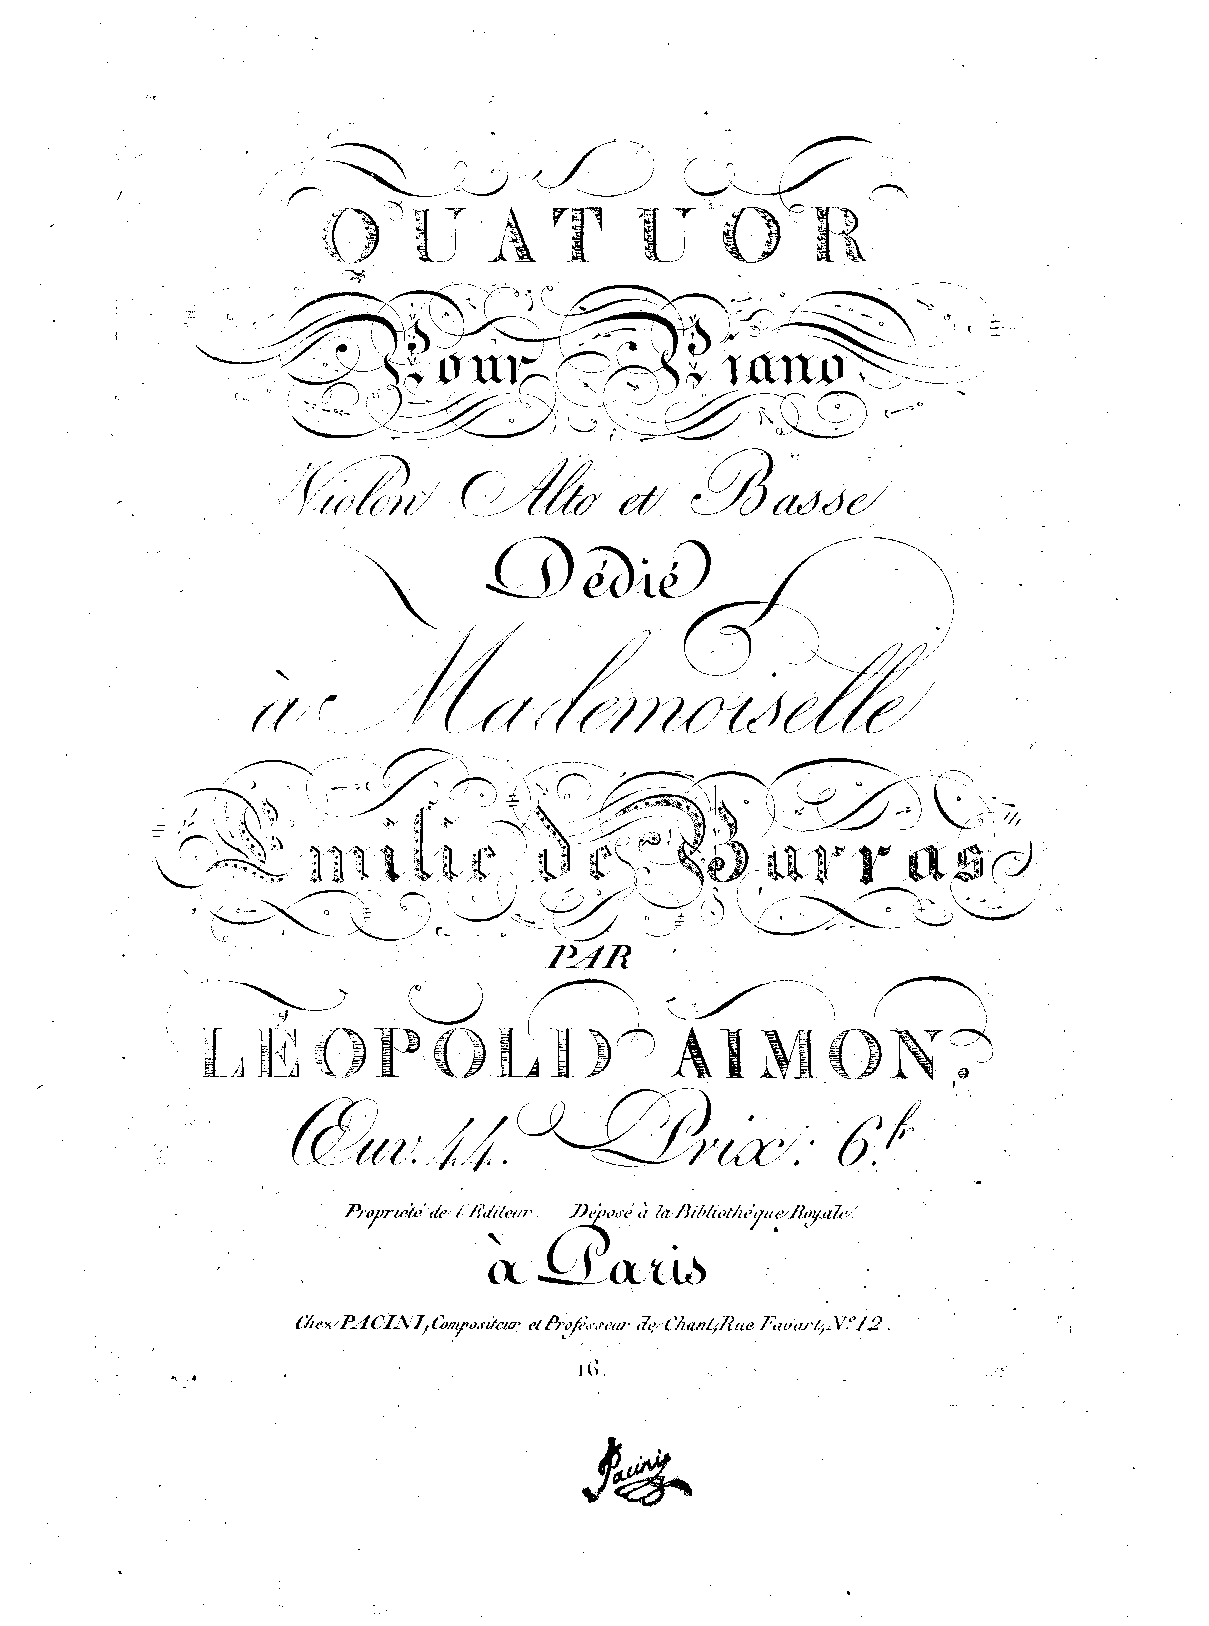 QUATUOR
Pour Piano
Violon Alto et Basse
Dédié
à Mademoiselle
Emilie de Burras
PAR
LÉOPOLD AIMON.
Œuv. 44. Prix: 6.fr
Propriété de l'Editeur. Déposé à la Bibliothèque Royale.
à Paris
Chez PACINI, Compositeur et Professeur de Chant, Rue Favart, No. 12.
16.
Pacini